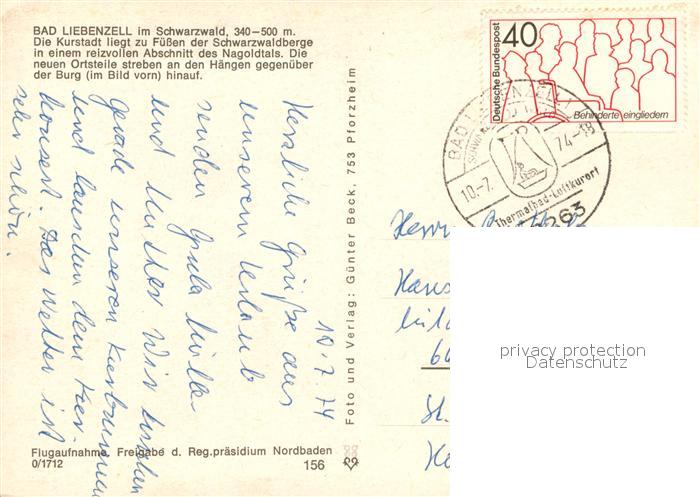 BAD LIEBENZELL im Schwarzwald, 340–500 m.
Die Kurstadt liegt zu Füßen der Schwarzwaldberge
in einem reizvollen Abschnitt des Nagoldtals. Die
neuen Ortsteile streben an den Hängen gegenüber
der Burg (im Bild vorn) hinauf.
10.7.74
Herzliche Grüße aus
unserem Urlaub
senden
und Mutter. Wir
Gerade unseren Kurbrunnen
und lauschen dem Kur-
konzert. Das Wetter ist
sehr schön.
Foto und Verlag: Günter Beck, 753 Pforzheim
Flugaufnahme. Freigabe d. Reg.präsidium Nordbaden
0/1712
156
Deutsche Bundespost
40
Behinderte eingliedern
BAD LIEBENZELL
10.-7. 74-18
Thermalbad-Luftkurort
Herrn
Hans
privacy protection
Datenschutz